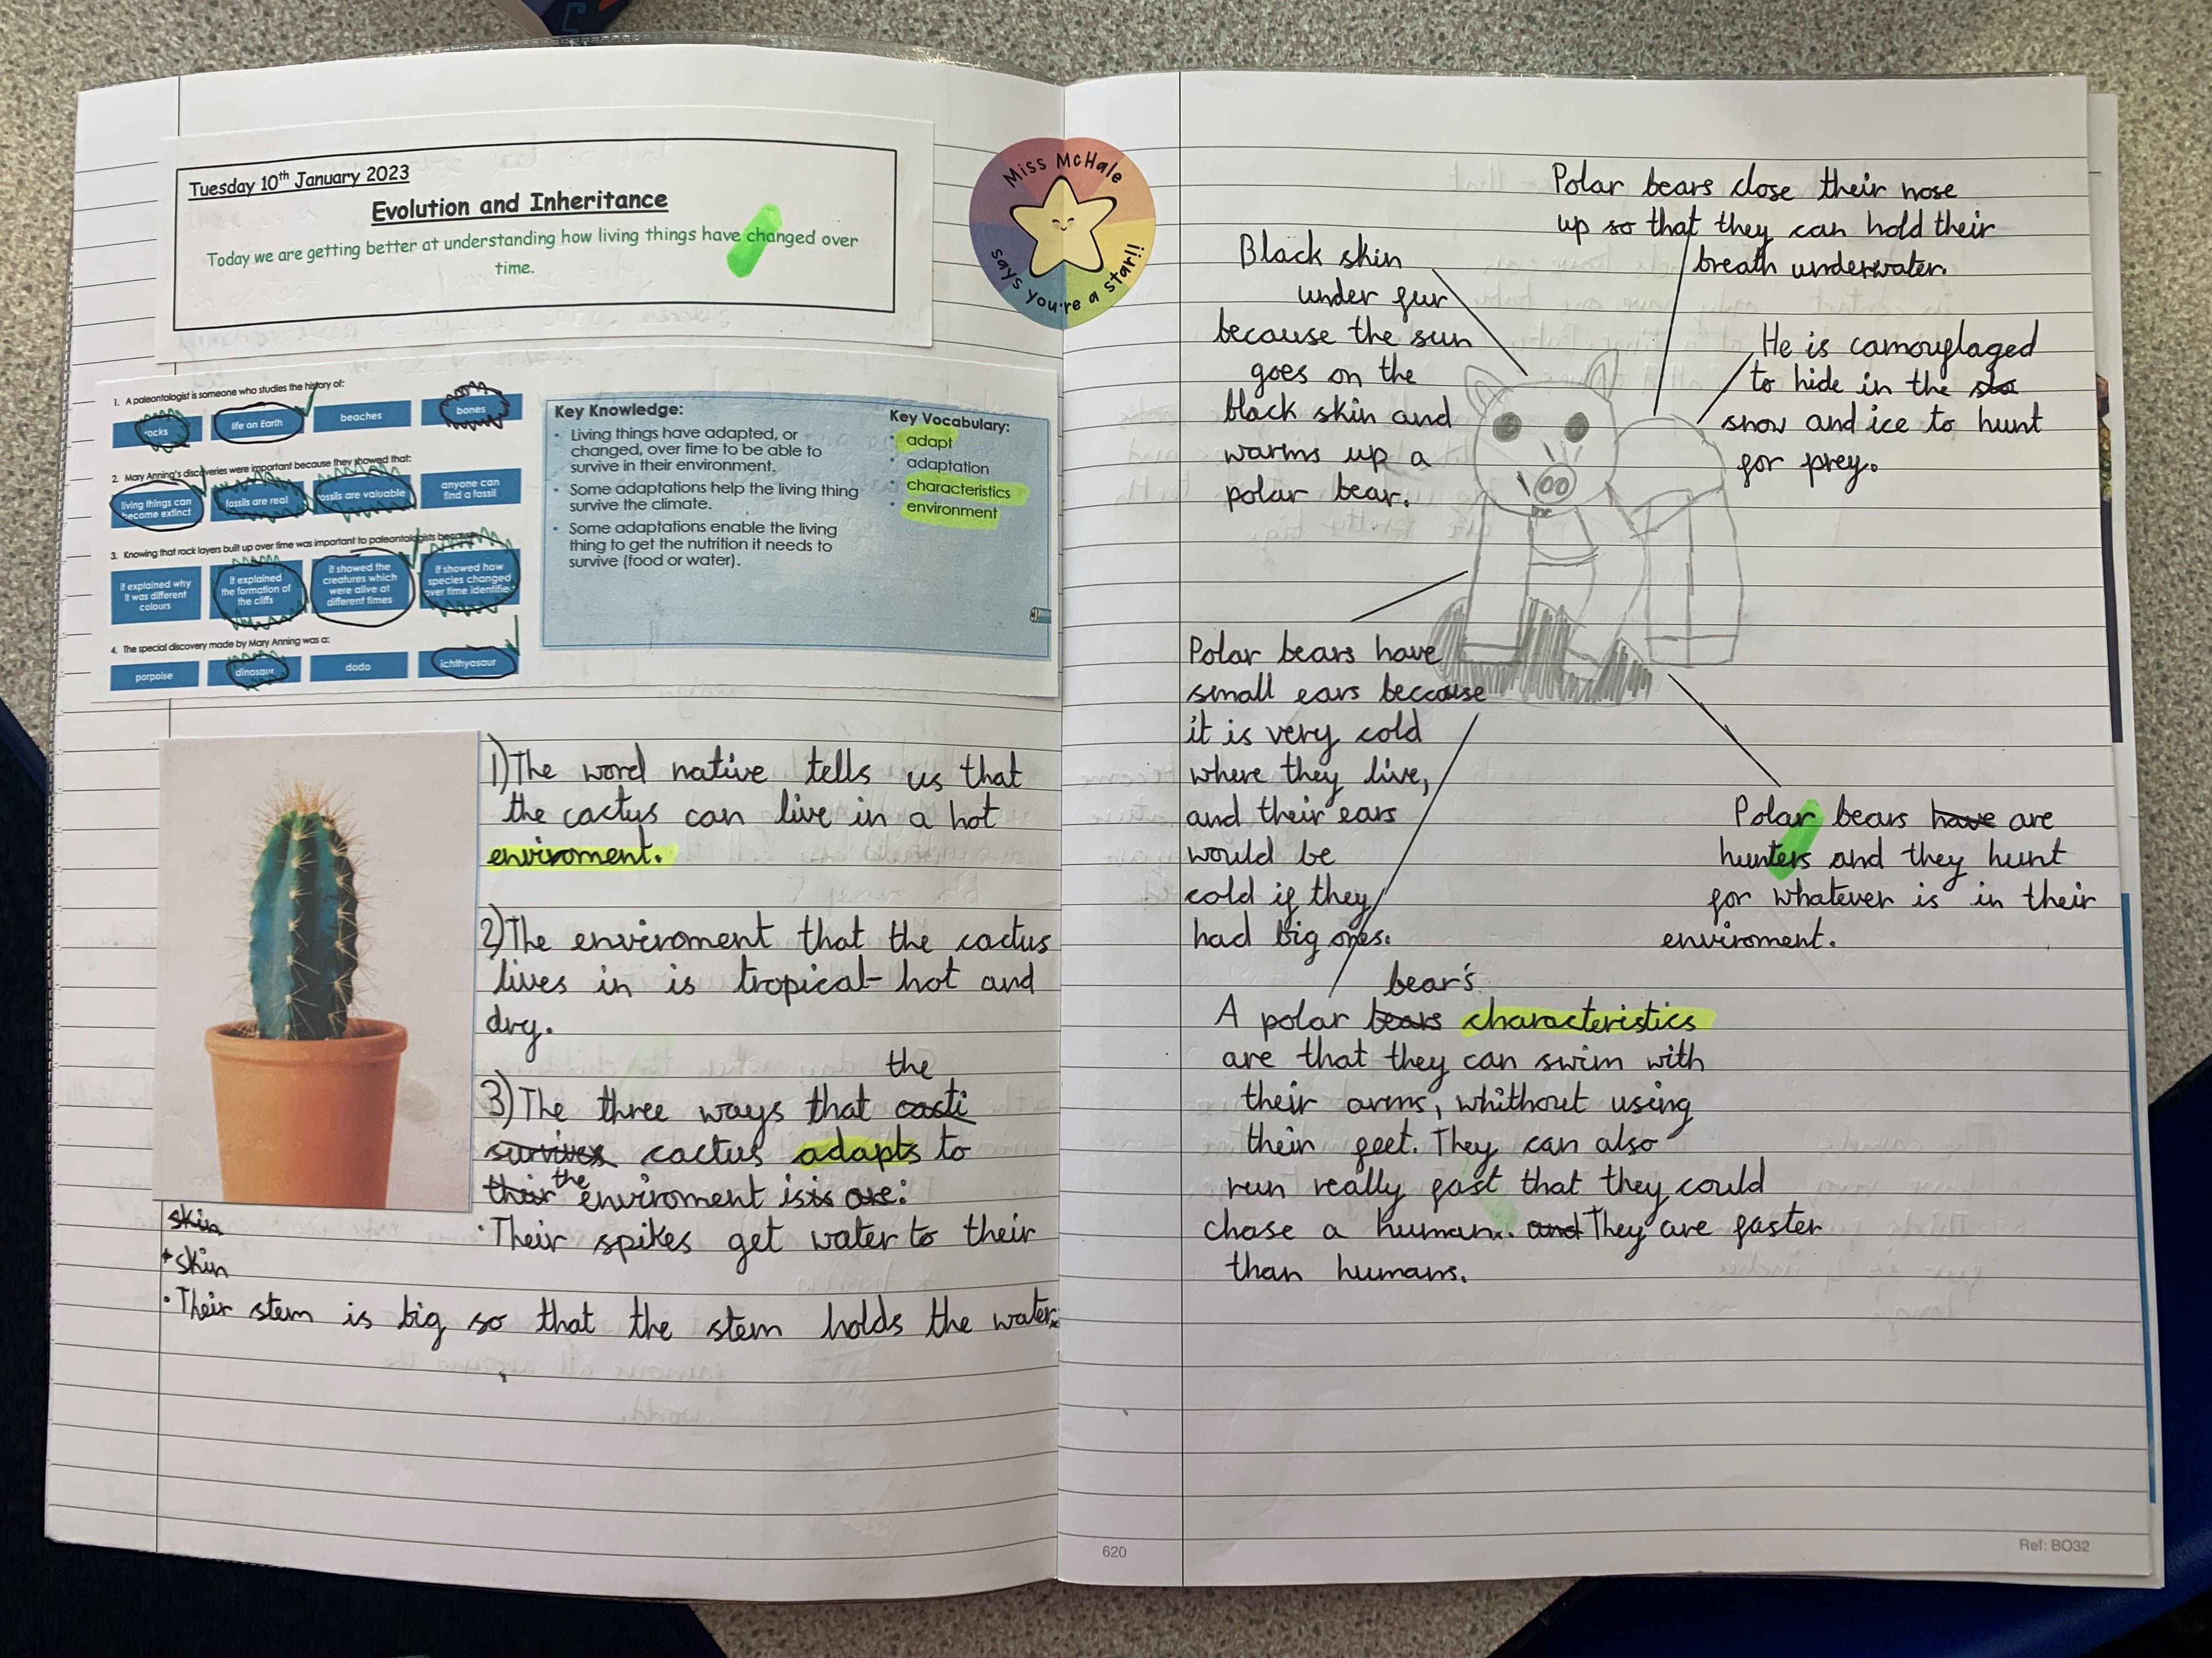 Tuesday 10th January 2023
Evolution and Inheritance
Today we are getting better at understanding how living things have changed over
time.
Miss McHale
says you're a star!!
1. A paleontologist is someone who studies the history of:
rocks
life on Earth
beaches
bones
2. Mary Anning's discoveries were important because they showed that:
living things can
become extinct
fossils are real
fossils are valuable
anyone can
find a fossil
3. Knowing that rock layers built up over time was important to paleontologists because
it explained why
it was different
colours
it explained
the formation of
the cliffs
it showed the
creatures which
were alive at
different times
it showed how
species changed
over time identified
4. The special discovery made by Mary Anning was a:
porpoise
dinosaur
dodo
ichthyosaur
Key Knowledge:
• Living things have adapted, or
changed, over time to be able to
survive in their environment.
• Some adaptations help the living thing
survive the climate.
• Some adaptations enable the living
thing to get the nutrition it needs to
survive (food or water).
Key Vocabulary:
• adapt
• adaptation
• characteristics
• environment
1) The word native tells us that
the cactus can live in a hot
enviroment.
2) The enviroment that the cactus
lives in is tropical- hot and
dry.
the
3) The three ways that casti
survives cactus adapts to
their the enviroment is is are:
• Their spikes get water to their
skin
• skin
• Their stem is big so that the stem holds the water.
Black skin
under fur
because the sun
goes on the
black skin and
warms up a
polar bear.
Polar bears close their nose
up so that they can hold their
breath underwater.
He is camouflaged
to hide in the
snow and ice to hunt
for prey.
Polar bears have
small ears because
it is very cold
where they live,
and their ears
would be
cold if they
had big ones.
Polar bears have are
hunters and they hunt
for whatever is in their
enviroment.
bear's
A polar bears characteristics
are that they can swim with
their arms, whithout using
their feet. They can also
run really fast that they could
chase a human. and They are faster
than humans.
620
Ref: BO32